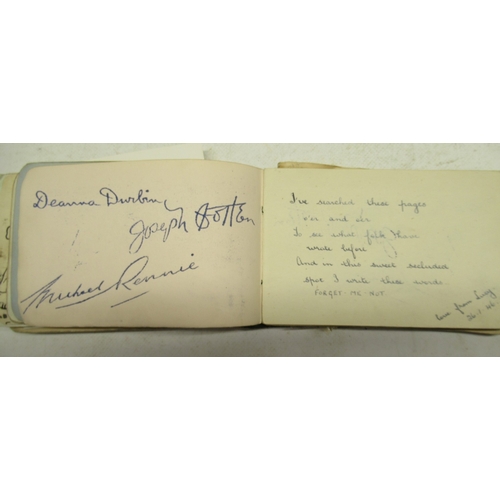 Deanna Durbin
Joseph Cotten
Michael Rennie
I've searched these pages
o'er and o'er
To see what folk
wrote before
And in this sweet secluded
spot I write these words
FORGET-ME-NOT
Love from
26.1.46